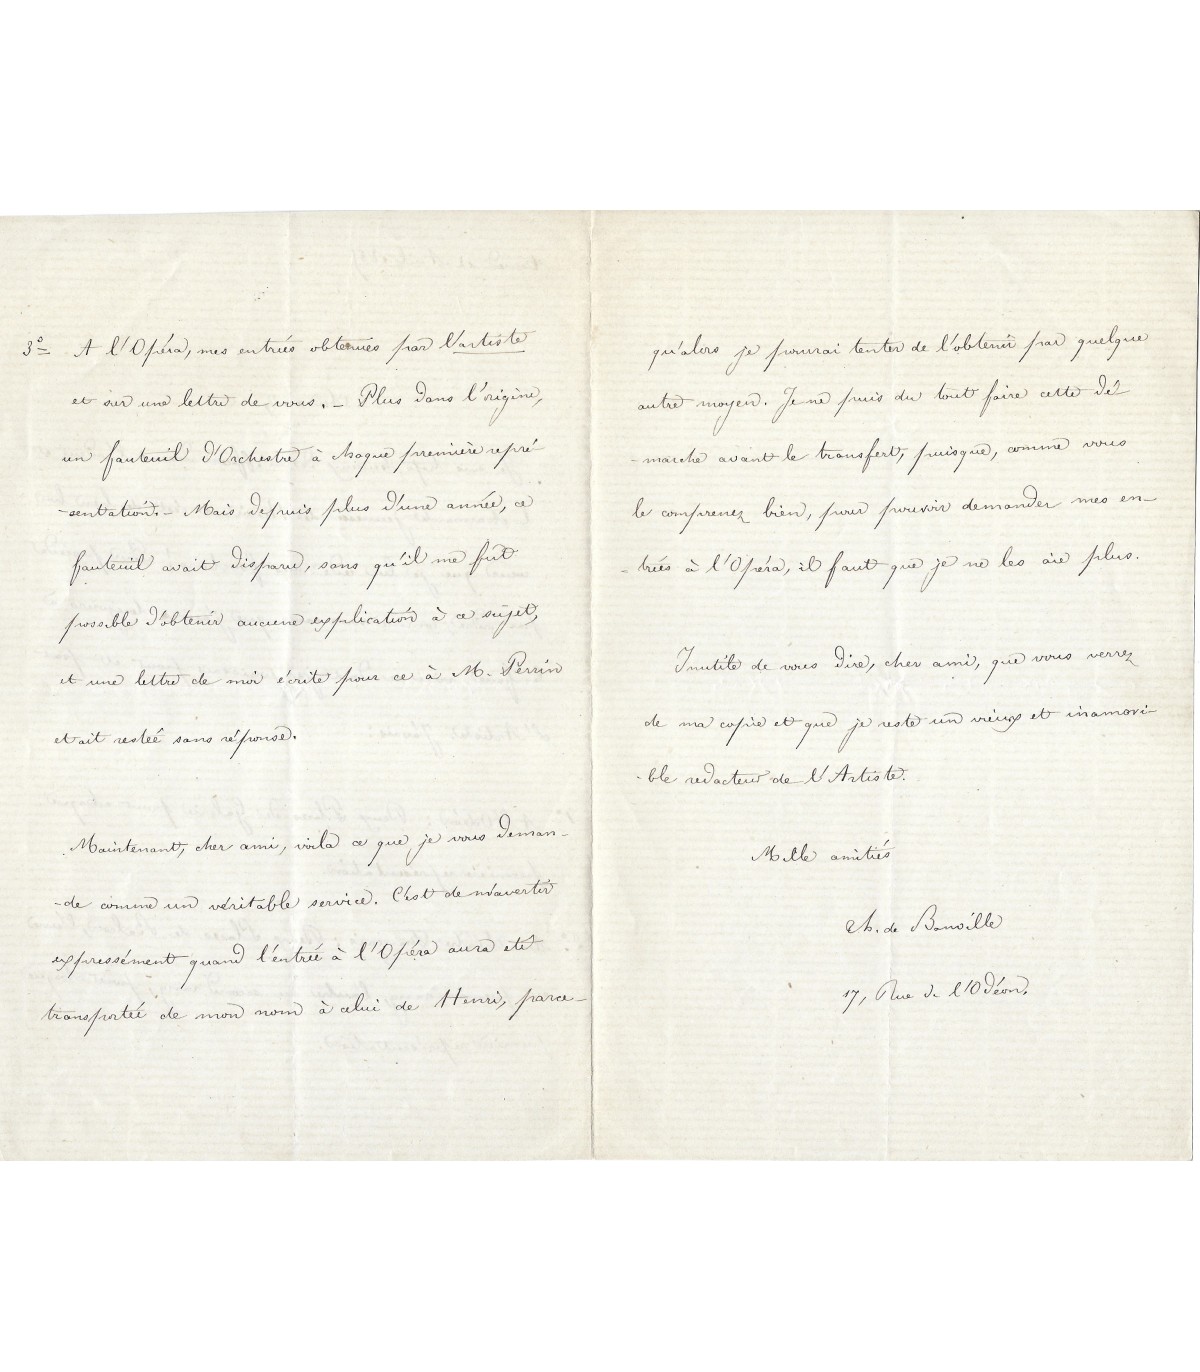 3º A l'Opéra, mes entrées obtenues par l'artiste
et sur une lettre de vous. – Plus dans l'origine,
un fauteuil d'Orchestre à chaque première repré-
-sentation. – Mais depuis plus d'une année, ce
fauteuil avait disparu, sans qu'il me fut
possible d'obtenir aucune explication à ce sujet,
et une lettre de moi écrite pour ce à M. Perrin
etait restée sans réponse.
Maintenant, cher ami, voila ce que je vous deman-
-de comme un véritable service. C'est de m'avertir
expressément quand l'entrée à l'Opéra aura eté
transportée de mon nom à celui de Henri, parce-
qu'alors je pourrai tenter de l'obtenir par quelque
autre moyen. Je ne puis du tout faire cette dé
-marche avant le transfert, puisque, comme vous
le comprenez bien, pour pouvoir demander mes en-
-trées à l'Opéra, il faut que je ne les aie plus.
Inutile de vous dire, cher ami, que vous verrez
de ma copie et que je reste un vieux et inamovi-
-ble redacteur de l'Artiste.
Mille amitiés
Th. de Banville
17, Rue de l'Odéon.